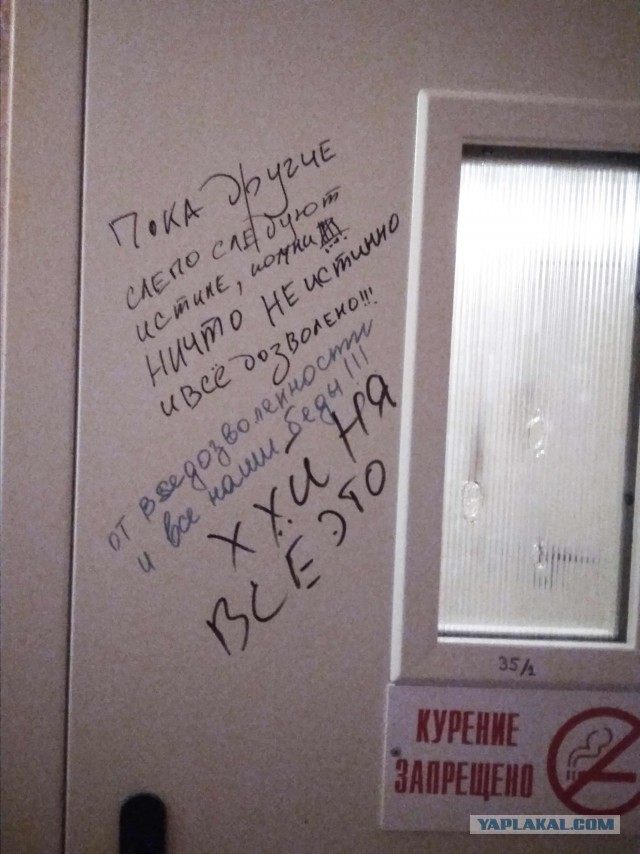 Пока другие
слепо следуют
истине, помни
НИЧТО НЕ ИСТИННО
и всё дозволено!!!
от вседозволенности
и все наши беды!!!
ХХИНЯ
ВСЕ ЭТО
35/1
КУРЕНИЕ
ЗАПРЕЩЕНО
YAPLAKAL.COM